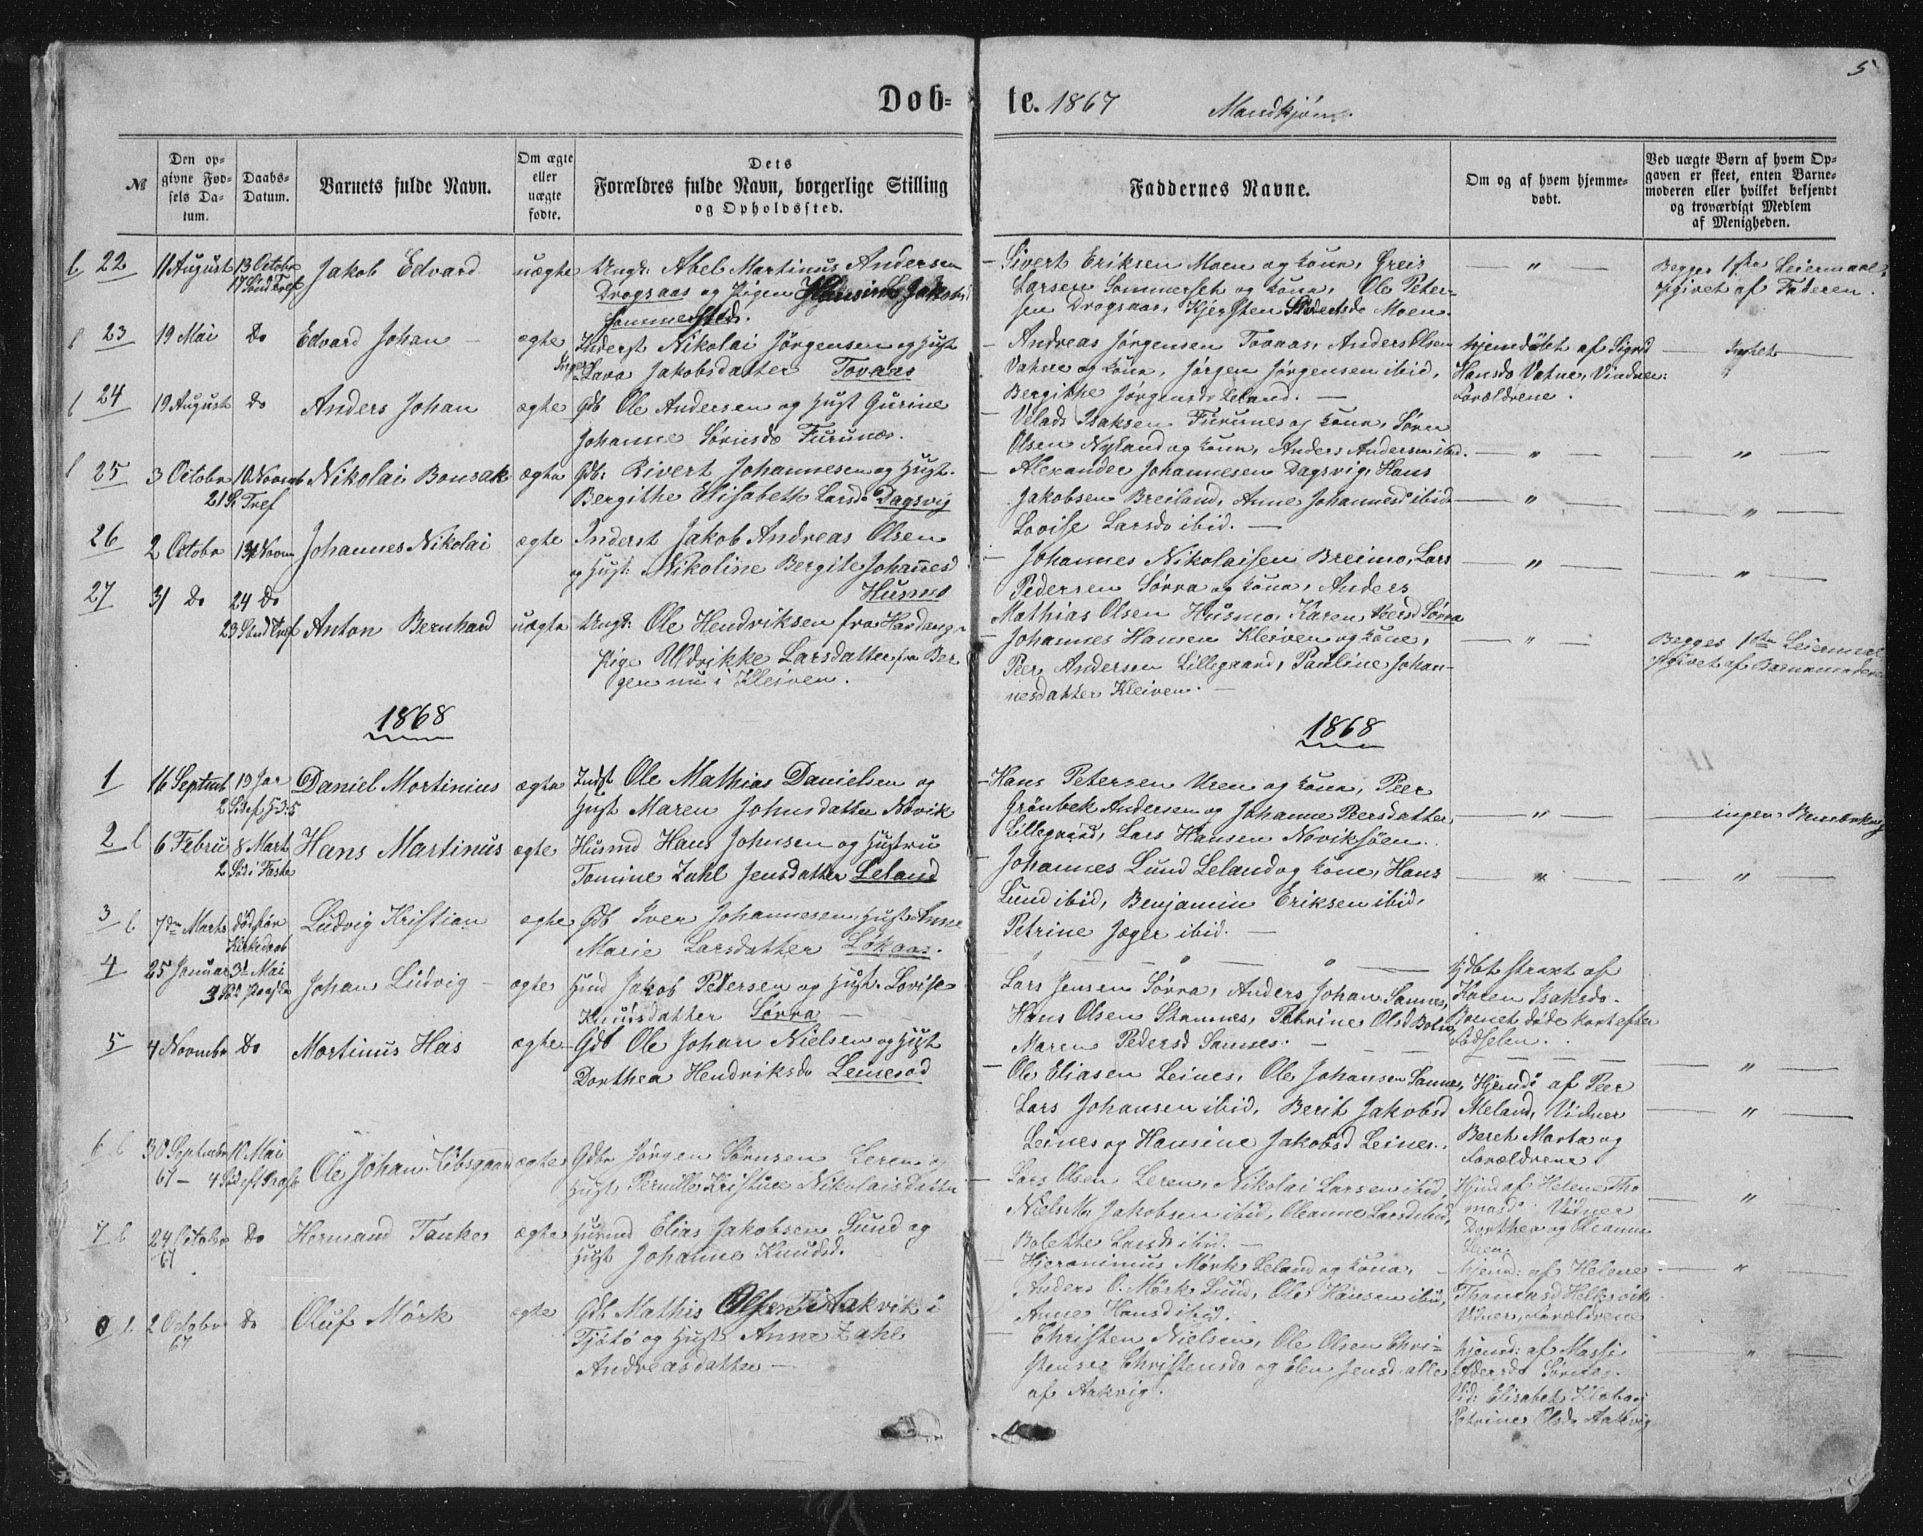 5
Døb-
te. 1867 Mandkjøn.
№
Den op-
givne Fød-
sels Da-
tum.
Daabs-
Datum.
Barnets fulde Navn.
Om ægte
eller
uægte
fødte.
Dets
Forældres fulde Navn, borgerlige Stilling
og Opholdssted.
Faddernes Navne.
Om og af hvem hjemme-
døbt.
Ved uægte Børn af hvem Op-
gaven er skeet, enten Barne-
moderen eller hvilket bekjendt
og troværdigt Medlem
af Menigheden.
22
11 August
13 Octobr
Jakob Edvard
uægte
Ungk: Abel Martinus Andersen
Drogsaas og Pigen Hansine Jakobsd
Sommersted.
Sivert Eriksen Moen og kone, Greis
Larsen Sommerset og kone, Ole Peter-
sen Drogsaas, Kjersten Moen.
— " —
Begges 1ste Leiermaal,
opgivet af Faderen.
23
19 Mai
Do
Edvard Johan
ægte
Inderst Nikolai Jørgensen og Hust
Lava Jakobsdatter Tovaas
Andreas Jørgensen Tovaas, Anders Olsen
Vatne og kone, Jørgen Jørgensen ibid,
Bergithe Jørgensd Leland. —
hjemdøbt af Sigrid
Hansd Vatne, Vidner:
Forældrene.
24
19 August
Do
Anders Johan
ægte
Gdb Ole Andersen og Hust Gurine
Johanne Sørnsd Furunæs.
Isaksen Furunes og kone, Sørn
Olsen Nyland og kone, Anders Andersen ibid.
— " —
— " —
25
3 Octobr
10 Novemb
21 S. Tref
Nikolai Bonsak
ægte
Gdb: Sivert Johannesen og Hust.
Bergithe Elisabeth Larsd. Dagsvig
Alexander Johannesen Dagsvig, Hans
Jakobsen Breiland, Anne Johannesd ibid
Lovise Larsd ibid. —
— " —
— " —
26
2 Octobr
Johannes Nikolai
ægte
Inderst Jakob Andreas Olsen
og Hust: Nikoline Bergite Johannesd
Husmo
Johannes Nikolaisen Breimo, Lars
Pedersen Sørra og kone, Anders
Mathias Olsen Husmo, Karen Peersd Sørra
— " —
— " —
27
31 Do
24 Do
23 Sønd Tref
Anton Bernhard
uægte
Ungk: Ole Hendriksen fra Hardang.
Pige Uldrikke Larsdatter fra Ber
gen nu i Kleiven.
Johannes Hansen Kleiven og kone,
Peer Andersen Lillegaard, Pauline Johan-
nesdatter Kleiven. —
— " —
Begges 1ste Leiermaal
opgivet af Barnemoderen
1868
1868
1
16 Septemb
19 Jan
Daniel Mortinius
ægte
Indst Ole Mathias Danielsen og
Hust Maren Johnsdatter Novik
Hans Petersen Uren og kone, Peer
Grønbek Andersen og Johanne Peersdatter
Lillegaard, Lars Hansen Noviksjøen.
— " —
ingen Bemærkning
2
6 Febru
8 Mart
2 Sd i Faste
Hans Martinus
ægte
Husmd Hans Johnsen og Hustru
Tomine Zahl Jensdatter Leland
Johannes Lund Leland og kone, Hans
Lund ibid, Benjamin Eriksen ibid,
Petrine Jæger ibid. —
— " —
— " —
3
7de Marts
død før
Kirkedaab
Ludvig Kristian
ægte
Gdb Iver Johannesen, Hust Anne
Marie Larsdatter Løkaas.
" " "
4
25 Januar
3de Mai
Johan Ludvig
ægte
Hmd Jakob Pedersen og Hust. Lovise
Knudsdatter Sørra —
Lars Jensen Sørra, Anders Johan Sannes,
Hans Olsen Stamnes, Petrine Olsd
Maren Pedersd Sannes. —
hjdbt straxt af
Karen Isaksd.
Barnet døde kort efter
Fødselen.
5
4 Novembr
Do
Mortinus Has
ægte
Gdb Ole Johan Nielsen og Hust
Dorthea Hendriksd Leinesod
Ole Eliasen Leines, Ole Johansen Sannes,
Lars Johansen ibid, Berit Jakobsd
Leines og Hansine Jakobsd Leines.
Hjemd: af Peer
Meland, Vidner
Beret Marta og
Forældrene
— " —
6
30 Septembr
67
10 Mai
Ole Johan Kibsgaard
ægte
Gdbr Jørgen Sørnsen Leren og
Hust Pernille Kristine Nikolaisdatter
Lars Olsen Leren, Nikolai Larsen ibid,
Niels M. Jakobsen ibid, Oleanne Larsd ibid,
Bolette Larsd ibid. —
Hjmd af Helene Tho
masd Vidner
Dorthea og Oleanne
— " —
7
24 Octobr
67
Do
Hermand Tankes
ægte
Husmd Elias Jakobsen Lund og
Hust Johanne Knudsd.
Hieronimus Mørk Leland og kone,
Anders O. Mørk Lund, Ole Hansen ibid,
Anne Hansd ibid.
hjemd: af Helene
Thomasd
Vidner, Forældrene
— " —
2 Octobr
67
Do
Oluf Mörk
ægte
Gdb Mathis Olsen Aakvik i
Tjøtø og Hust Anne Zahl
Andreasdatter —
Christen Nielsen, Ole Olsen Chri-
stense Christensd og Elen Jensd alle
af Aakvig.
hjemd: af Massi
Vid: Elisabet
Petrine Olsd Aakvig
— " —